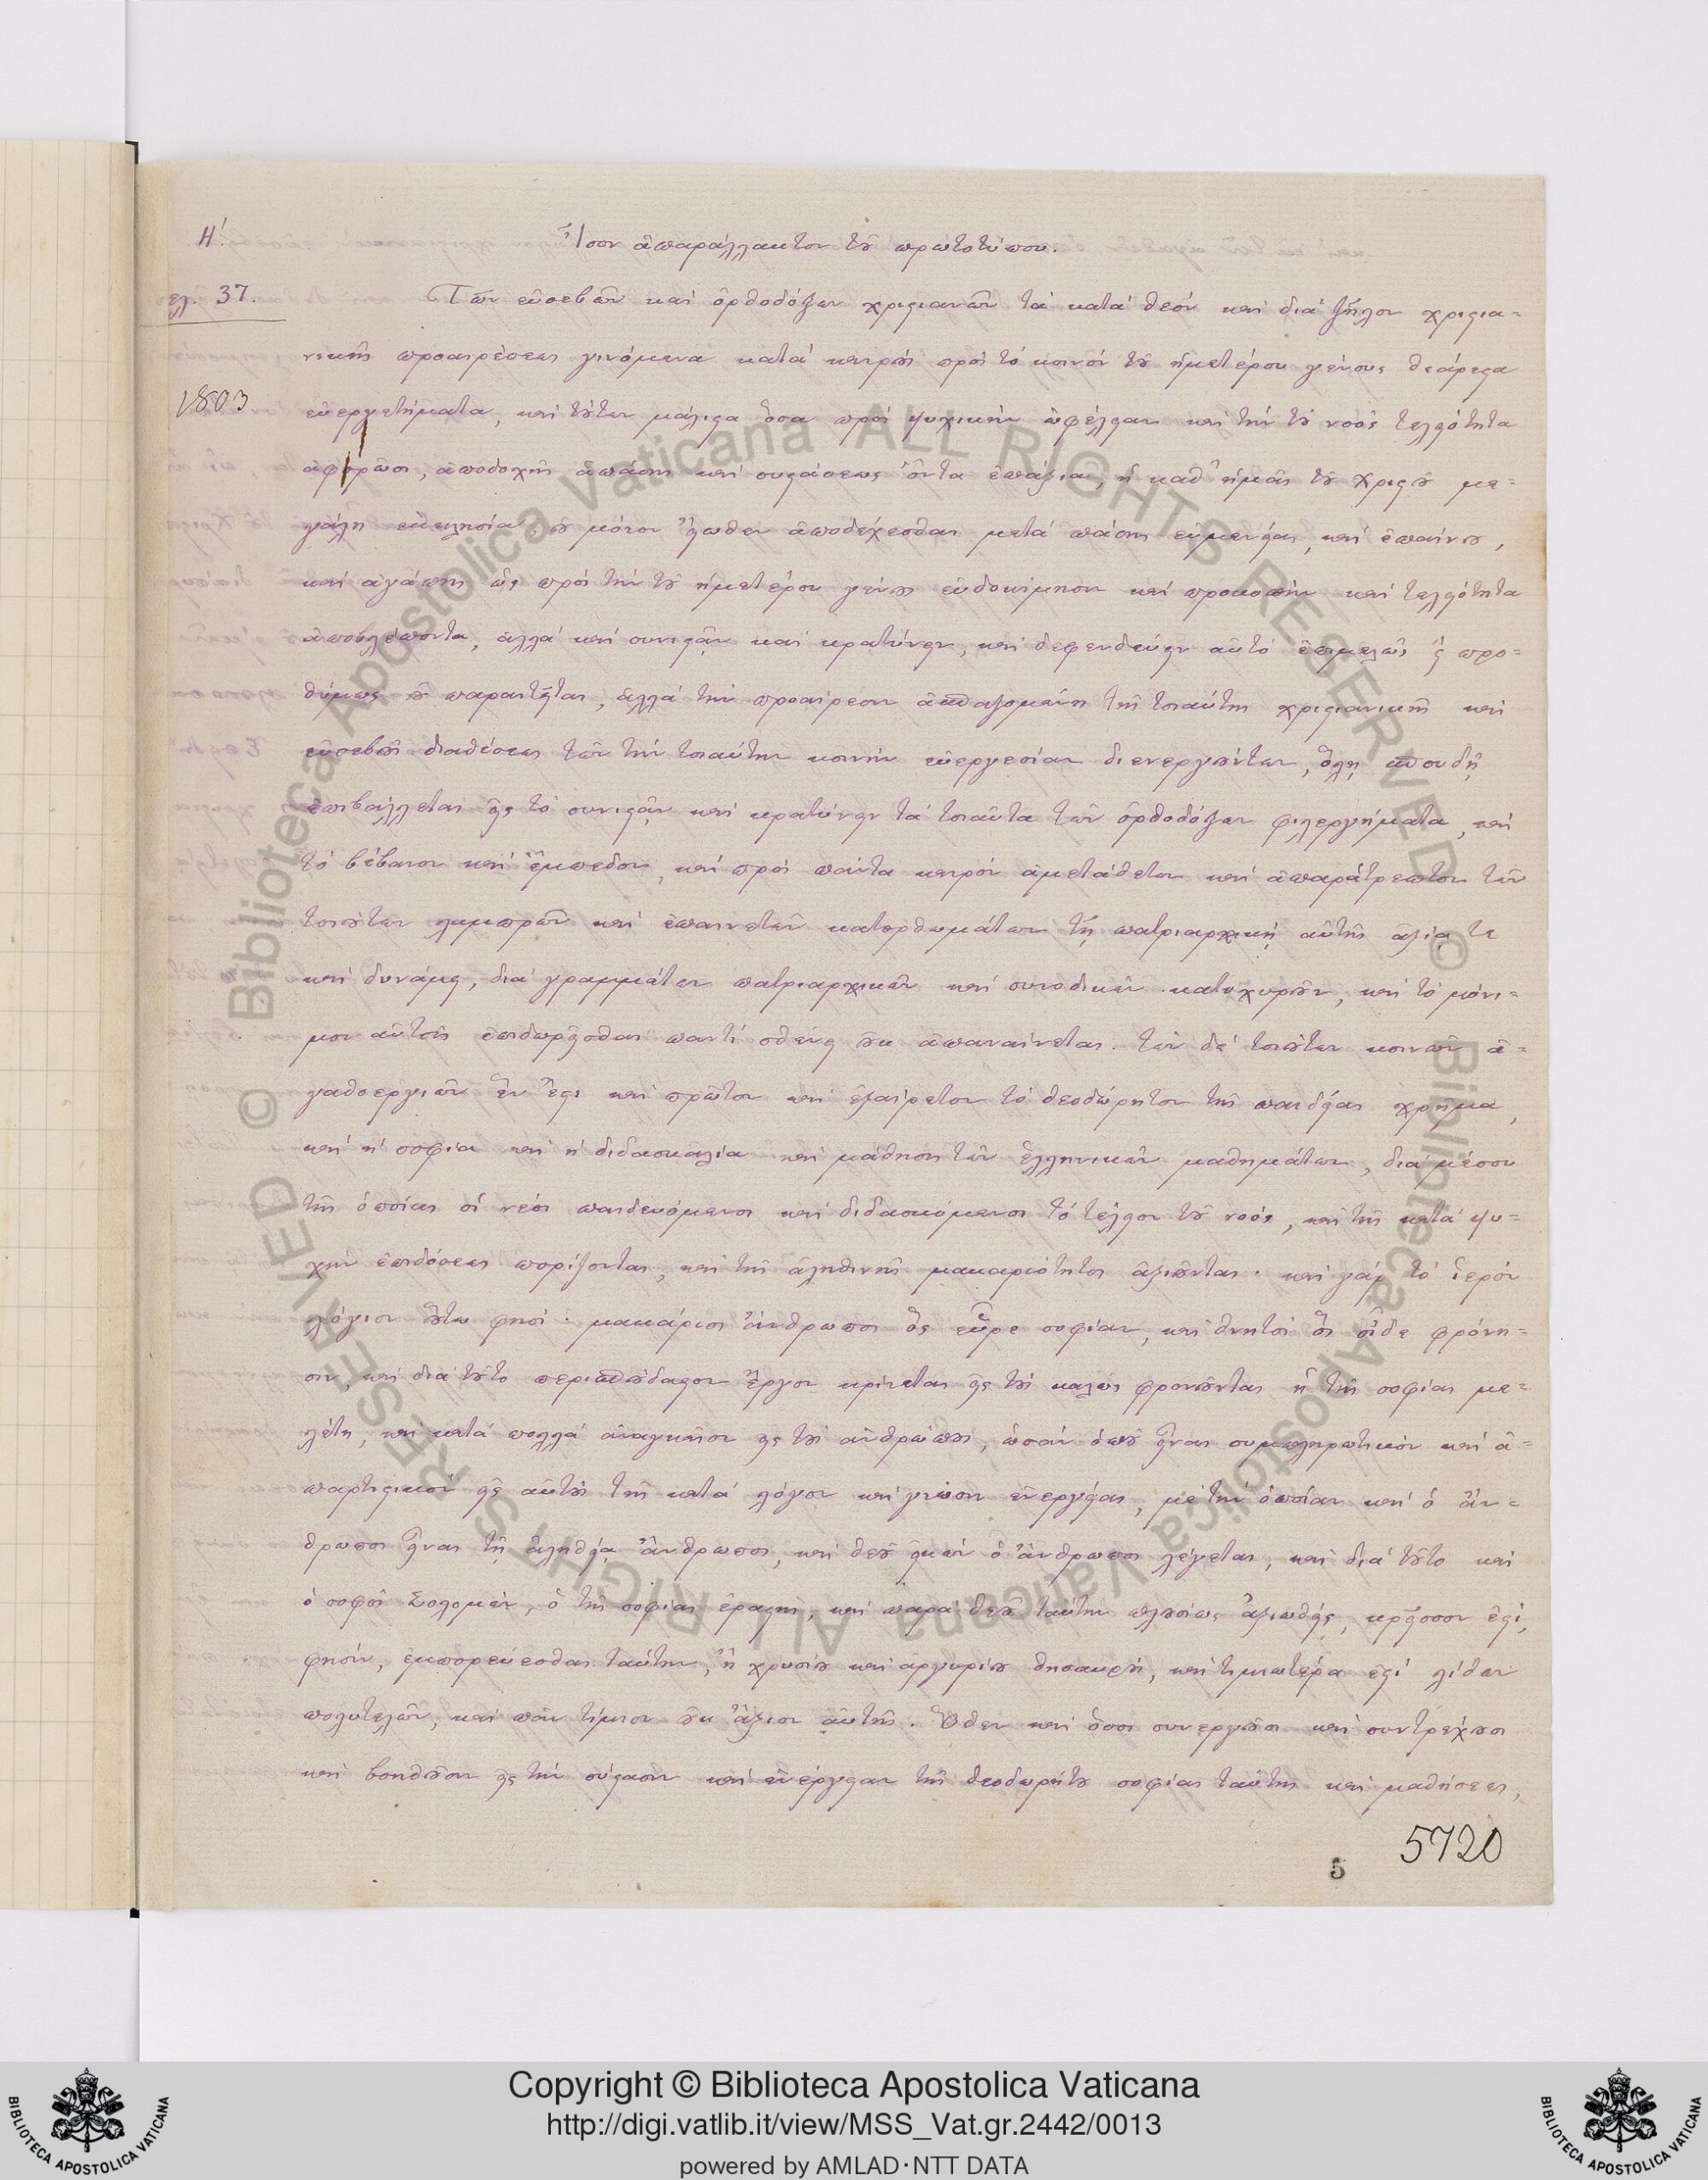 Η΄.
Ἴσον ἀπαράλλακτον τοῦ πρωτοτύπου.
σελ. 37.
Τῶν εὐσεβῶν καὶ ὀρθοδόξων χριστιανῶν τὰ κατὰ θεὸν καὶ διὰ ζῆλον χριστια=
νικῆς προαιρέσεως γινόμενα κατὰ καιροὺς πρὸς τὸ κοινὸν τοῦ ἡμετέρου γένους θεάρεστα
1803
εὐεργετήματα, καὶ τούτων μάλιστα ὅσα πρὸς ψυχικὴν ὠφέλειαν καὶ τὴν τοῦ νοὸς τελειότητα
ἀφορῶσι, ἀποδοχῆς ἁπάσης καὶ συστάσεως ὄντα ἐπάξια, ἡ καθ᾽ ἡμᾶς τοῦ Χριστοῦ με=
γάλη ἐκκλησία οὐ μόνον εἴωθεν ἀποδέχεσθαι μετὰ πάσης εὐμενείας, καὶ ἐπαίνου,
καὶ ἀγάπης ὡς πρὸς τὴν τοῦ ἡμετέρου γένους εὐδοκίμησιν καὶ προκοπὴν καὶ τελειότητα
ἀποβλέποντα, ἀλλὰ καὶ συνιστᾷν καὶ κρατύνειν, καὶ δεφενδεύειν αὐτὸ ἐπιμελῶς καὶ προ=
θύμως οὐ παραιτεῖται, ἀλλὰ τὴν προαίρεσιν ἀσπαζομένη τῆς τοιαύτης χριστιανικῆς καὶ
εὐσεβοῦς διαθέσεως τῶν τὴν τοιαύτην κοινὴν εὐεργεσίαν διενεργούντων, ὅλῃ σπουδῇ
ἐπιβάλλεται εἰς τὸ συνιστᾷν καὶ κρατύνειν τὰ τοιαῦτα τῶν ὀρθοδόξων φιλεργήματα, καὶ
τὸ βέβαιον καὶ ἔμπεδον, καὶ πρὸς πάντα καιρὸν ἀμετάθετον καὶ ἀπαράτρεπτον τῶν
τοιούτων λαμπρῶν καὶ ἐπαινετῶν κατορθωμάτων τῇ πατριαρχικῇ αὐτῆς ἀξίᾳ τε
καὶ δυνάμει, διὰ γραμμάτων πατριαρχικῶν καὶ συνοδικῶν κατοχυροῦν, καὶ τὸ μόνι=
μον αὐτοῖς ἐπιδωρεῖσθαι παντὶ σθένει οὐκ ἀπαναίνεται. τῶν δὲ τοιούτων κοινῶν ἀ=
γαθοεργιῶν ἕν ἐστι καὶ πρῶτον καὶ ἐξαίρετον τὸ θεοδώρητον τῆς παιδείας χρῆμα,
καὶ ἡ σοφία καὶ ἡ διδασκαλία καὶ μάθησις τῶν ἑλληνικῶν μαθημάτων, διὰ μέσου
τῆς ὁποίας οἱ νέοι παιδευόμενοι καὶ διδασκόμενοι τὸ τέλειον τοῦ νοός, καὶ τῆς κατὰ ψυ=
χὴν ἐπιδόσεως πορίζονται, καὶ τῆς ἀληθινῆς μακαριότητος ἀξιοῦνται. καὶ γὰρ τὸ ἱερὸν
λόγιον οὕτω φησί· μακάριος ἄνθρωπος ὃς εὗρε σοφίαν, καὶ θνητὸς ὃς οἶδε φρόνη=
σιν, καὶ διὰ τοῦτο περισπούδαστον ἔργον κρίνεται εἰς τοὺς καλῶς φρονοῦντας ἡ τῆς σοφίας με=
λέτη, καὶ κατὰ πολλὰ ἀναγκαῖον εἰς τοὺς ἀνθρώπους, ὡσὰν ὁποῦ εἶναι συμπληρωτικὸν καὶ ἀ=
παρτιστικὸν εἰς αὐτοὺς τῆς κατὰ λόγον καὶ γνῶσιν ἐνεργείας, μὲ τὴν ὁποίαν καὶ ὁ ἄν=
θρωπος εἶναι τῇ ἀληθείᾳ ἄνθρωπος, καὶ θεοῦ εἰκὼν ὁ ἄνθρωπος λέγεται, καὶ διὰ τοῦτο καὶ
ὁ σοφὸς Σολομών, ὁ τῆς σοφίας ἐραστής, καὶ παρὰ θεοῦ ταύτην πλουσίως ἀξιωθείς, κρεῖσσον ἐστί,
φησίν, ἐμπορεύεσθαι ταύτην, ἢ χρυσίου καὶ ἀργυρίου θησαυρούς, καὶ τιμιωτέρα ἐστὶ λίθων
πολυτελῶν, καὶ πᾶν τίμιον οὐκ ἄξιον αὐτῆς. Ὅθεν καὶ ὅσοι συνεργοῦσι καὶ συντρέχουσι
καὶ βοηθοῦσιν εἰς τὴν σύστασιν καὶ ἐνέργειαν τῆς θεοδωρήτου σοφίας ταύτης καὶ μαθήσεως,
5720
5
© Biblioteca Apostolica Vaticana ALL RIGHTS RESERVED © Biblioteca Apostolica Vaticana ALL RIGHTS RESERVED
BIBLIOTECA APOSTOLICA VATICANA
Copyright © Biblioteca Apostolica Vaticana
http://digi.vatlib.it/view/MSS_Vat.gr.2442/0013
powered by AMLAD·NTT DATA
BIBLIOTECA APOSTOLICA VATICANA